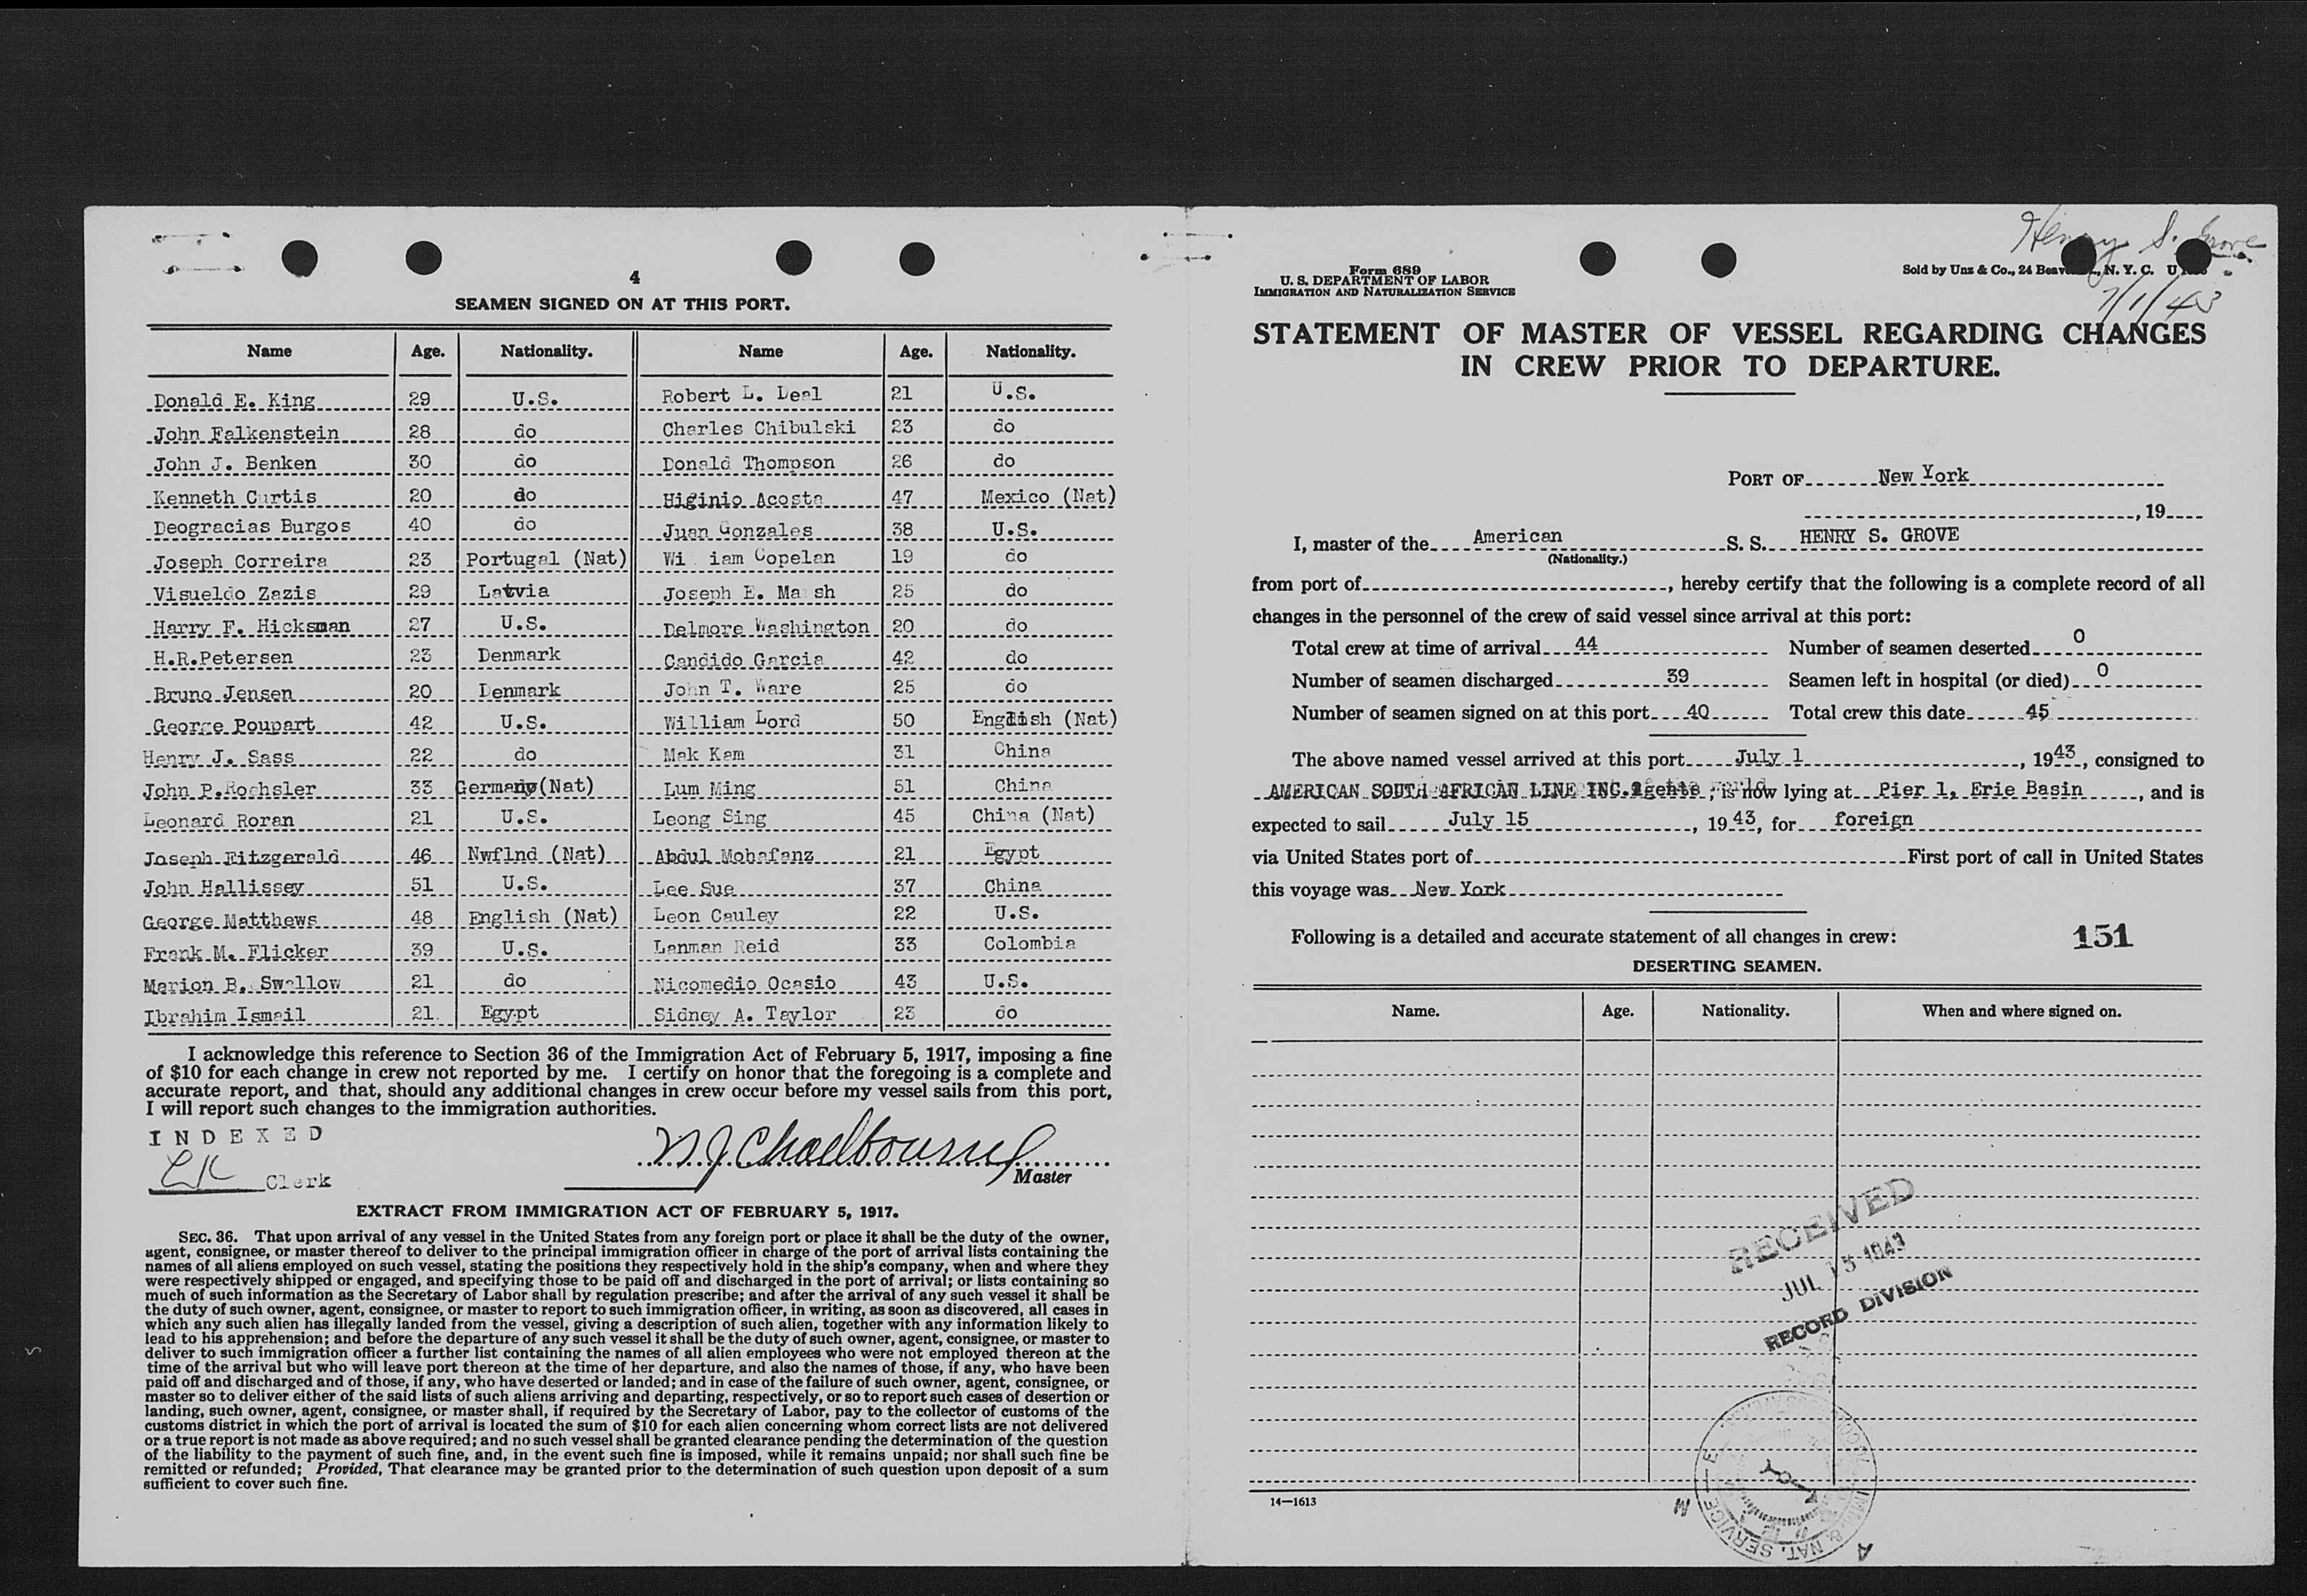 4
SEAMEN SIGNED ON AT THIS PORT.
Name Age. Nationality. Name Age. Nationality.
Donald E. King 29 U.S. Robert L. Deal 21 U.S.
John Falkenstein 28 do Charles Chibulski 23 do
John J. Benken 30 do Donald Thompson 26 do
Kenneth Curtis 20 do Higinio Acosta 47 Mexico (Nat)
Deogracias Burgos 40 do Juan Gonzales 38 U.S.
Joseph Correira 23 Portugal (Nat) Wi iam Copelan 19 do
Visueldo Zazis 29 Latvia Joseph E. Ma sh 25 do
Harry F. Hicksman 27 U.S. Delmore Washington 20 do
H.R.Petersen 23 Denmark Candido Garcia 42 do
Bruno Jensen 20 Denmark John T. Ware 25 do
George Poupart 42 U.S. William Lord 50 English (Nat)
Henry J. Sass 22 do Mak Kam 31 China
John P.Rochsler 33 Germany(Nat) Lum Ming 51 China
Leonard Roran 21 U.S. Leong Sing 45 China (Nat)
Joseph Fitzgerald 46 Nwflnd (Nat) Abdul Mohafanz 21 Egypt
John Hallissey 51 U.S. Lee Sue 37 China
George Matthews 48 English (Nat) Leon Cauley 22 U.S.
Frank M. Flicker 39 U.S. Lanman Reid 33 Colombia
Marion B. Swallow 21 do Nicomedio Ocasio 43 U.S.
Ibrahim Ismail 21 Egypt Sidney A. Taylor 23 do
I acknowledge this reference to Section 36 of the Immigration Act of February 5, 1917, imposing a fine
of $10 for each change in crew not reported by me. I certify on honor that the foregoing is a complete and
accurate report, and that, should any additional changes in crew occur before my vessel sails from this port,
I will report such changes to the immigration authorities.
INDEXED
LK Clerk
Master
EXTRACT FROM IMMIGRATION ACT OF FEBRUARY 5, 1917.
SEC. 36. That upon arrival of any vessel in the United States from any foreign port or place it shall be the duty of the owner,
agent, consignee, or master thereof to deliver to the principal immigration officer in charge of the port of arrival lists containing the
names of all aliens employed on such vessel, stating the positions they respectively hold in the ship's company, when and where they
were respectively shipped or engaged, and specifying those to be paid off and discharged in the port of arrival; or lists containing so
much of such information as the Secretary of Labor shall by regulation prescribe; and after the arrival of any such vessel it shall be
the duty of such owner, agent, consignee, or master to report to such immigration officer, in writing, as soon as discovered, all cases in
which any such alien has illegally landed from the vessel, giving a description of such alien, together with any information likely to
lead to his apprehension; and before the departure of any such vessel it shall be the duty of such owner, agent, consignee, or master to
deliver to such immigration officer a further list containing the names of all alien employees who were not employed thereon at the
time of the arrival but who will leave port thereon at the time of her departure, and also the names of those, if any, who have been
paid off and discharged and of those, if any, who have deserted or landed; and in case of the failure of such owner, agent, consignee, or
master so to deliver either of the said lists of such aliens arriving and departing, respectively, or so to report such cases of desertion or
landing, such owner, agent, consignee, or master shall, if required by the Secretary of Labor, pay to the collector of customs of the
customs district in which the port of arrival is located the sum of $10 for each alien concerning whom correct lists are not delivered
or a true report is not made as above required; and no such vessel shall be granted clearance pending the determination of the question
of the liability to the payment of such fine, and, in the event such fine is imposed, while it remains unpaid; nor shall such fine be
remitted or refunded; Provided, That clearance may be granted prior to the determination of such question upon deposit of a sum
sufficient to cover such fine.
Henry S. Grove
7/1/43
Form 689
U. S. DEPARTMENT OF LABOR
IMMIGRATION AND NATURALIZATION SERVICE
Sold by Unz & Co., 24 Beaver, N. Y. C.
STATEMENT OF MASTER OF VESSEL REGARDING CHANGES
IN CREW PRIOR TO DEPARTURE.
PORT OF New York
, 19
I, master of the American S. S. HENRY S. GROVE
(Nationality.)
from port of , hereby certify that the following is a complete record of all
changes in the personnel of the crew of said vessel since arrival at this port:
Total crew at time of arrival 44 Number of seamen deserted 0
Number of seamen discharged 39 Seamen left in hospital (or died) 0
Number of seamen signed on at this port 40 Total crew this date 45
The above named vessel arrived at this port July 1 , 1943, consigned to
AMERICAN SOUTH AFRICAN LINE INC. agents , is now lying at Pier 1, Erie Basin , and is
expected to sail July 15 , 1943, for foreign
via United States port of First port of call in United States
this voyage was New York
Following is a detailed and accurate statement of all changes in crew: 151
DESERTING SEAMEN.
Name. Age. Nationality. When and where signed on.
RECEIVED
JUL 15 1943
RECORD DIVISION
14—1613